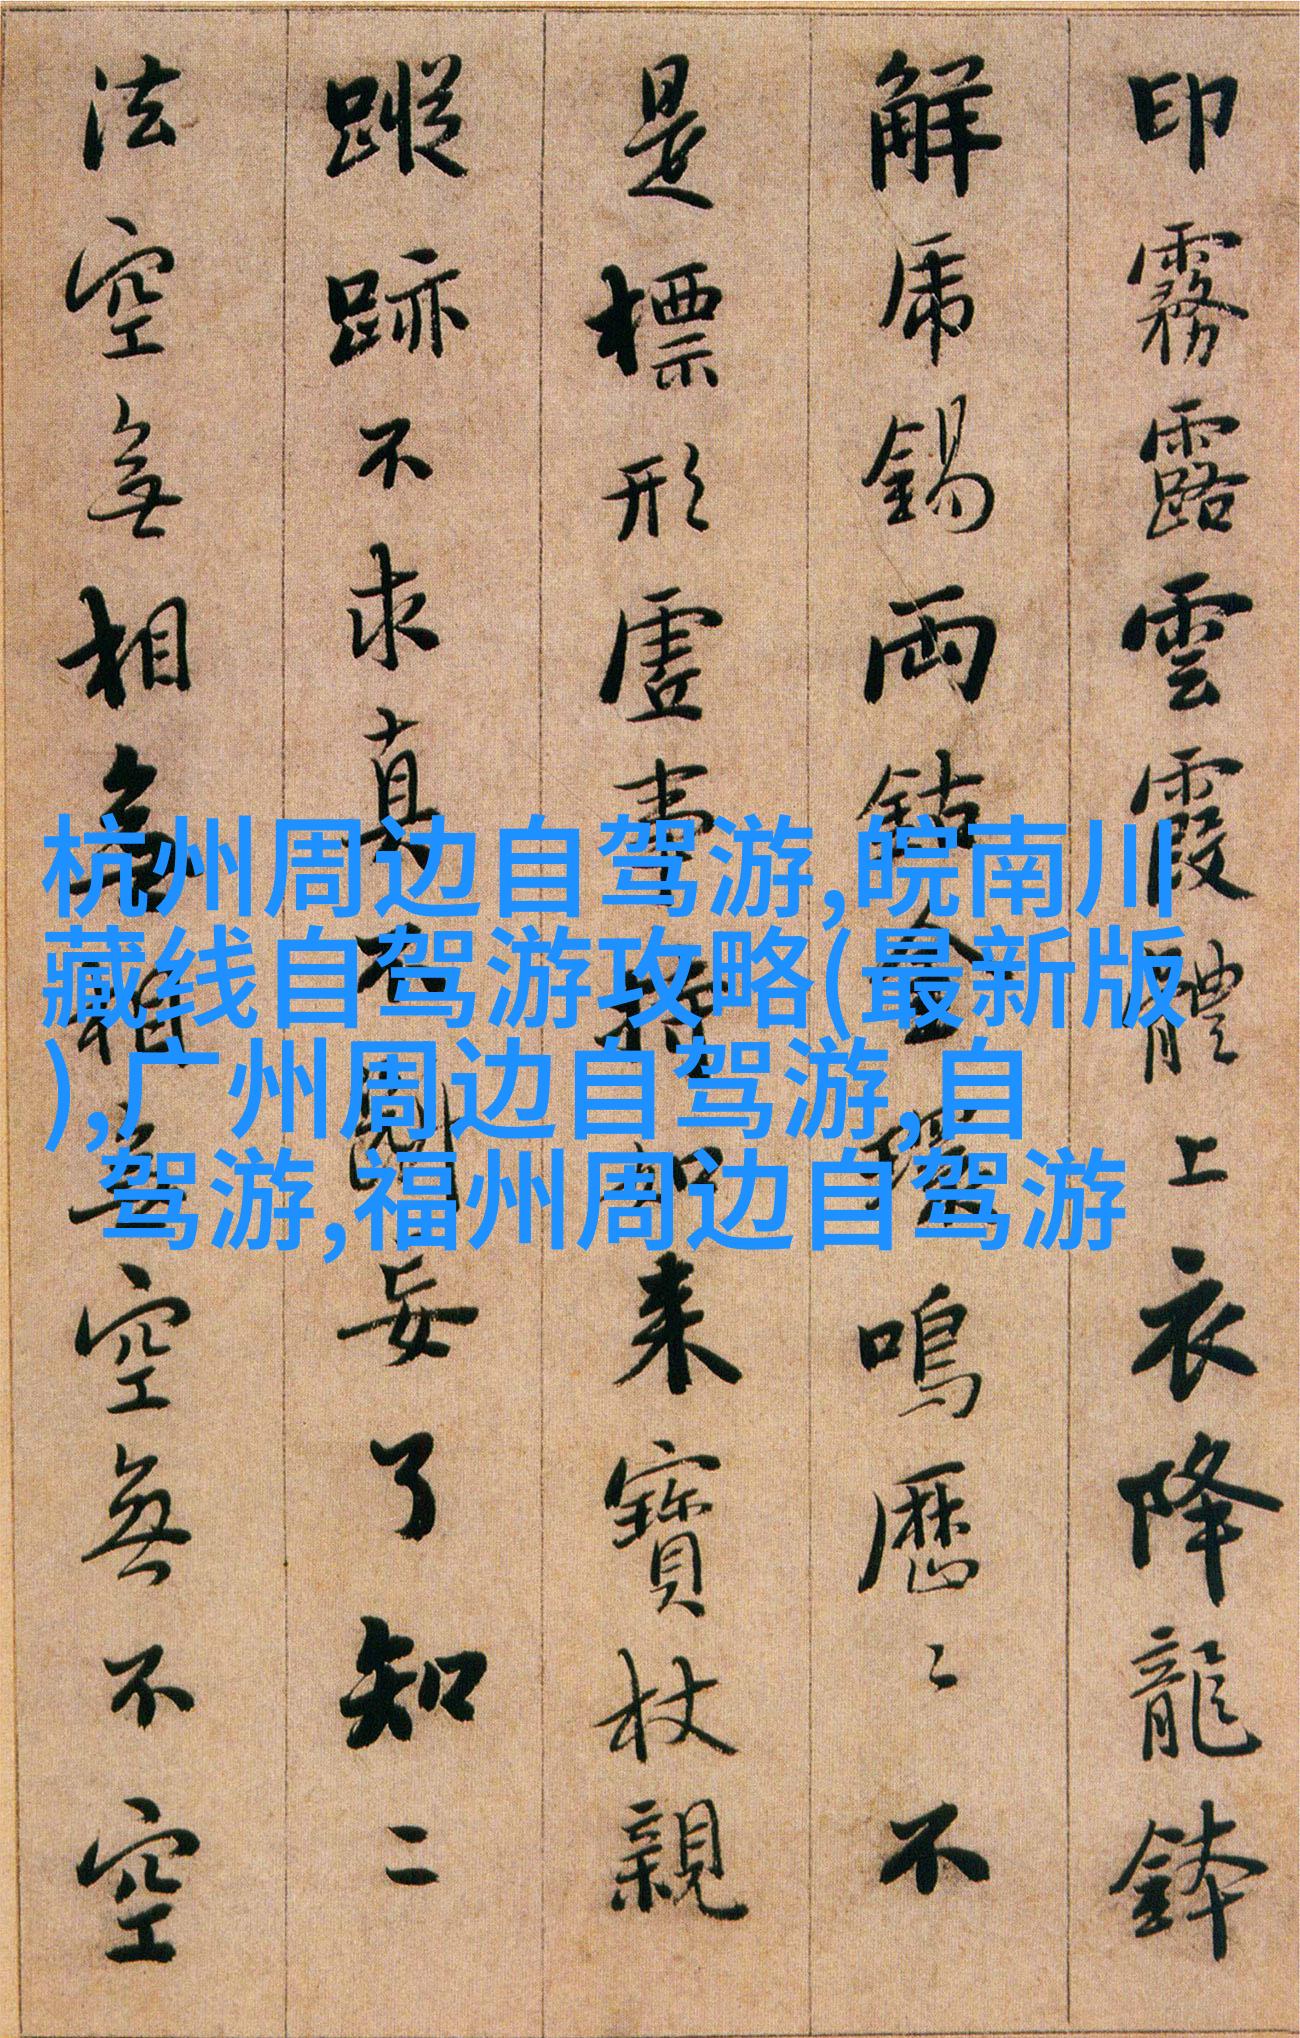 印霧露雲霞體上衣降龍鉢
解虎錫兩鈷金環鳴歷〻不
是標形虛事持如来寶杖親
蹤跡不求真不斷妄了知二
法空無相無相無空無不空
杭州周边自驾游,皖南川
藏线自驾游攻略(最新版
),广州周边自驾游,自
驾游,福州周边自驾游